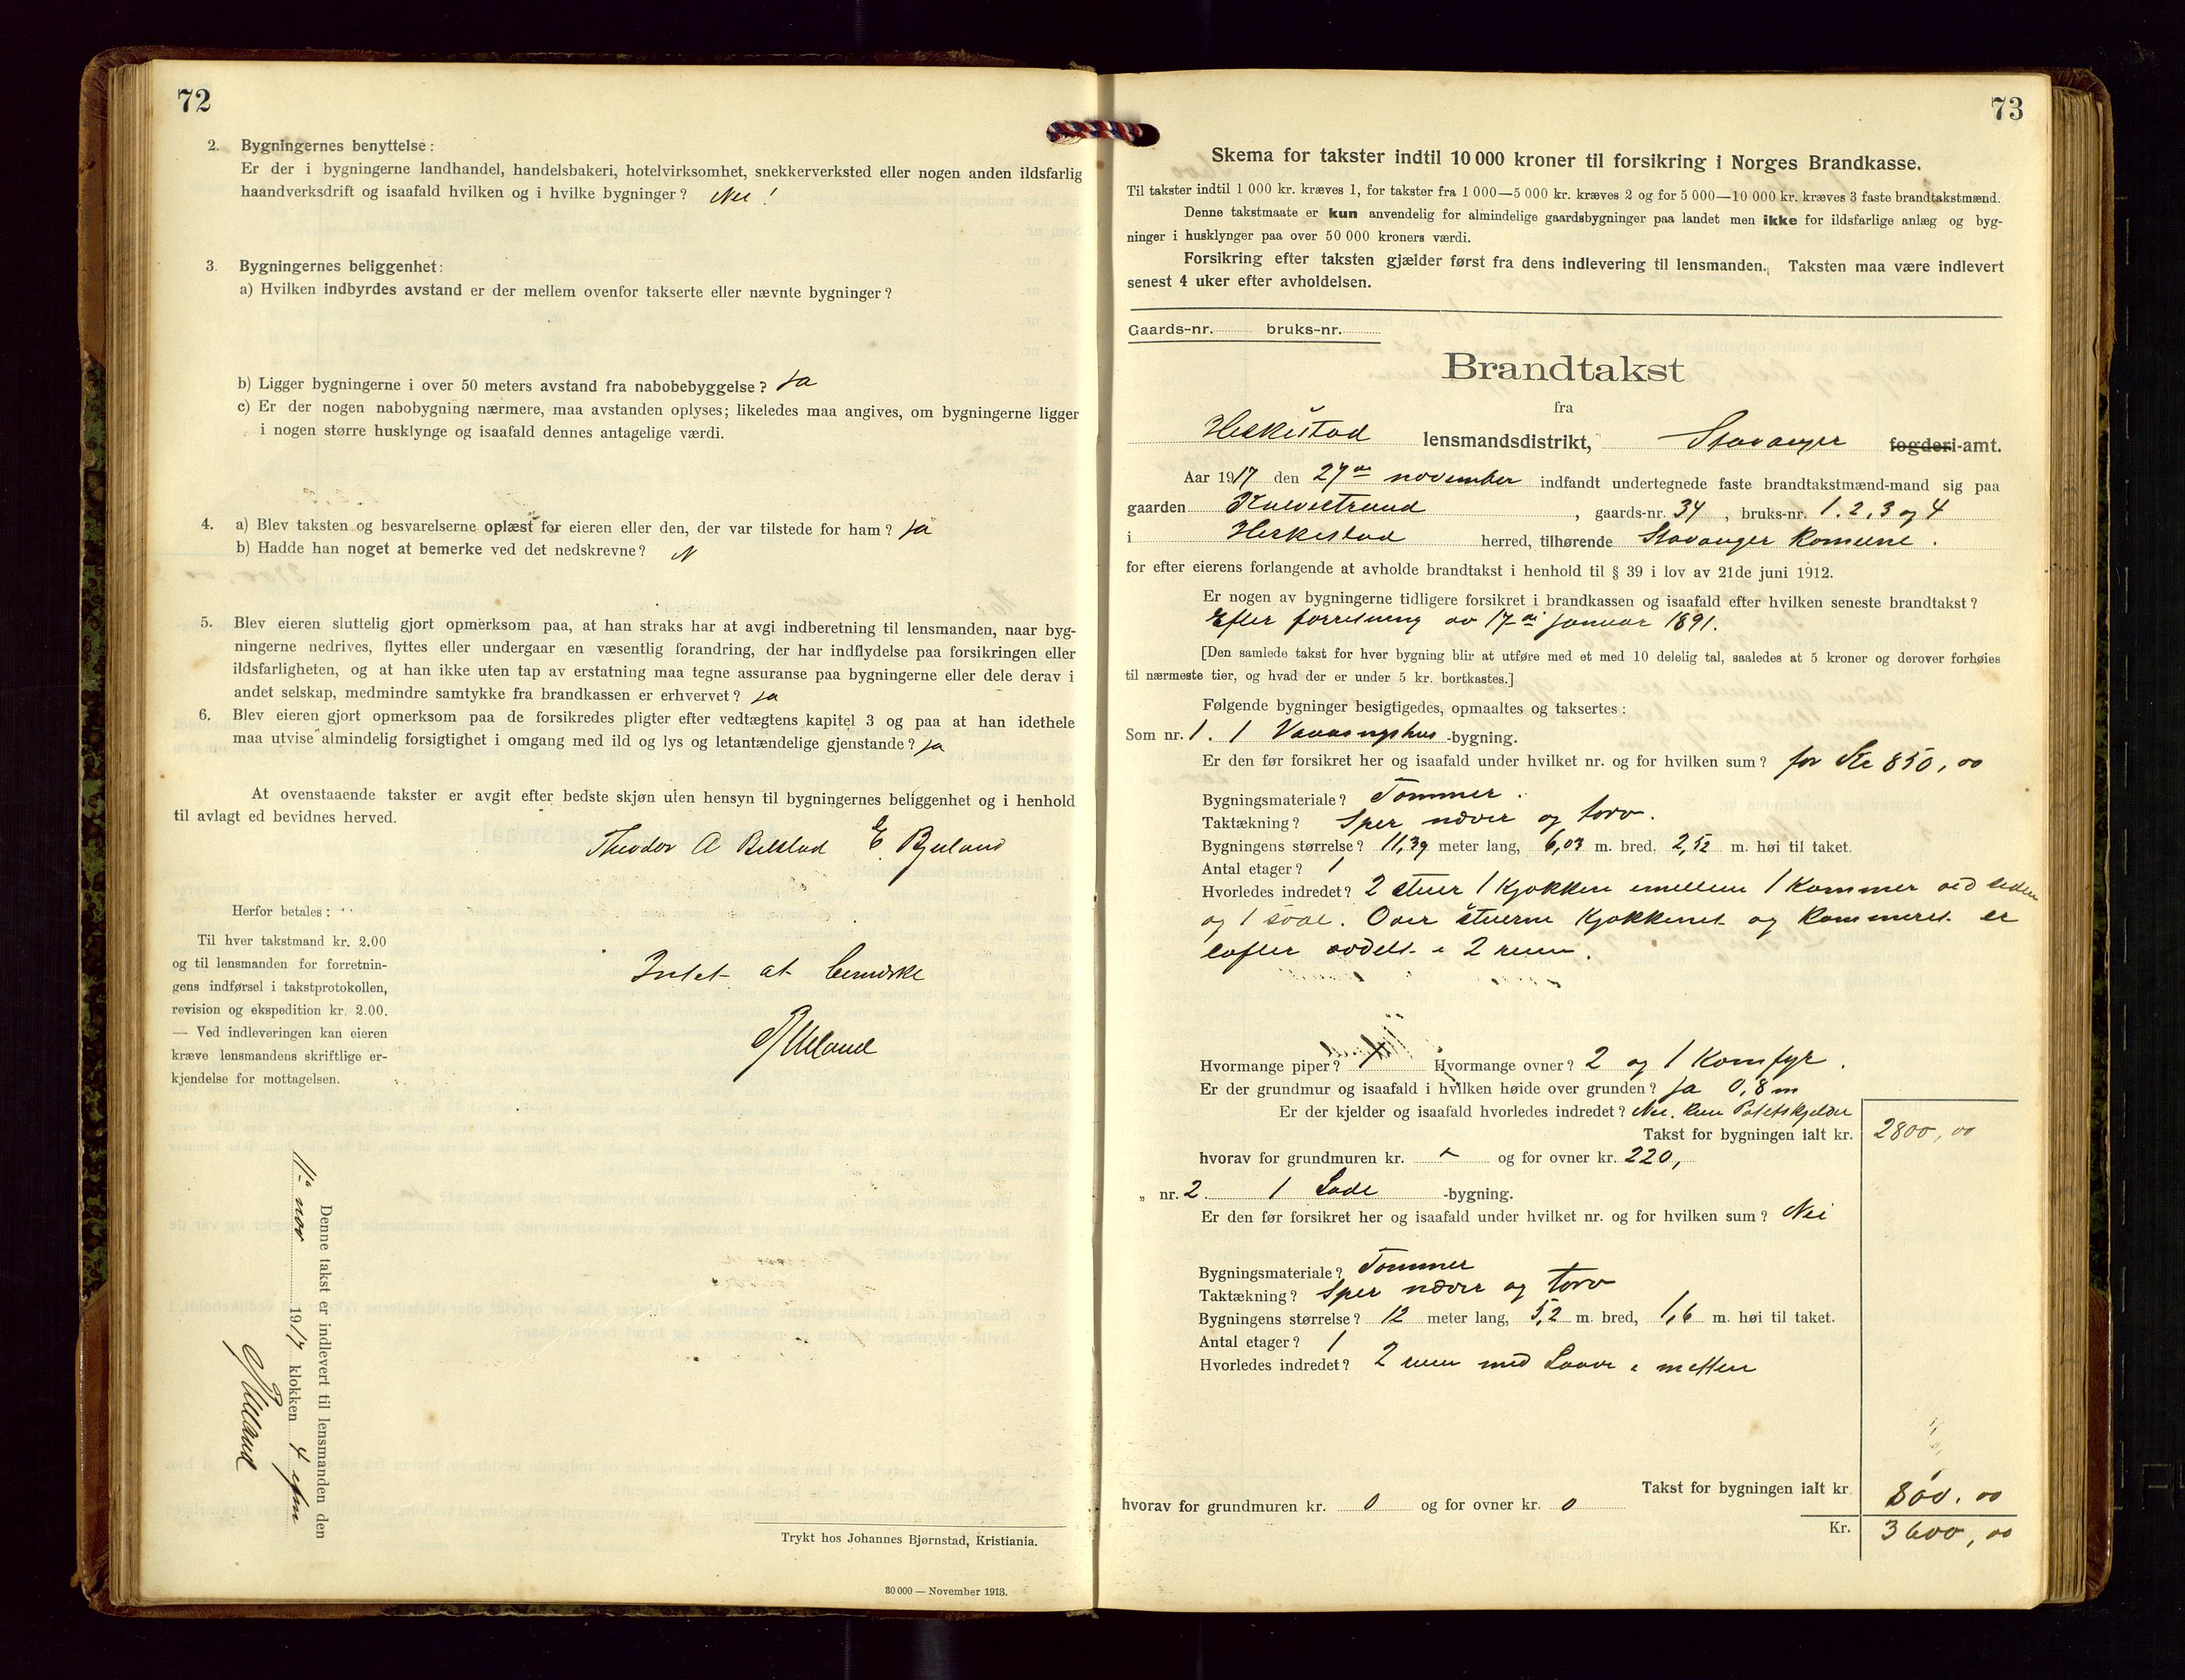 72
2. Bygningernes benyttelse:
Er der i bygningerne landhandel, handelsbakeri, hotelvirksomhet, snekkerverksted eller nogen anden ildsfarlig
haandverksdrift og isaafald hvilken og i hvilke bygninger? Nei!
3. Bygningernes beliggenhet:
a) Hvilken indbyrdes avstand er der mellem ovenfor takserte eller nævnte bygninger?
b) Ligger bygningerne i over 50 meters avstand fra nabobebyggelse? Ja
c) Er der nogen nabobygning nærmere, maa avstanden oplyses; likeledes maa angives, om bygningerne ligger
i nogen større husklynge og isaafald dennes antagelige værdi.
4. a) Blev taksten og besvarelserne oplæst for eieren eller den, der var tilstede for ham? Ja
b) Hadde han noget at bemerke ved det nedskrevne? N
5. Blev eieren sluttelig gjort opmerksom paa, at han straks har at avgi indberetning til lensmanden, naar byg-
ningerne nedrives, flyttes eller undergaar en væsentlig forandring, der har indflydelse paa forsikringen eller
ildsfarligheten, og at han ikke uten tap av erstatning maa tegne assuranse paa bygningerne eller dele derav i
andet selskap, medmindre samtykke fra brandkassen er erhvervet? Ja
6. Blev eieren gjort opmerksom paa de forsikredes pligter efter vedtægtens kapitel 3 og paa at han idethele
maa utvise almindelig forsigtighet i omgang med ild og lys og letantændelige gjenstande? Ja
At ovenstaaende takster er avgit efter bedste skjøn uten hensyn til bygningernes beliggenhet og i henhold
til avlagt ed bevidnes herved.
Theodor A E.
Herfor betales:
Til hver takstmand kr. 2.00
og til lensmanden for forretnin-
gens indførsel i takstprotokollen,
revision og ekspedition kr. 2.00.
— Ved indleveringen kan eieren
kræve lensmandens skriftlige er-
kjendelse for mottagelsen.
Intet at bemerke
Denne takst er indlevert til lensmanden den
11te nov 1917 klokken 4 efm
Trykt hos Johannes Bjørnstad, Kristiania.
30 000 — November 1913.
73
Skema for takster indtil 10 000 kroner til forsikring i Norges Brandkasse.
Til takster indtil 1 000 kr. kræves 1, for takster fra 1 000—5 000 kr. kræves 2 og for 5 000—10 000 kr. kræves 3 faste brandtakstmænd.
Denne takstmaate er kun anvendelig for almindelige gaardsbygninger paa landet men ikke for ildsfarlige anlæg og byg-
ninger i husklynger paa over 50 000 kroners værdi.
Forsikring efter taksten gjælder først fra dens indlevering til lensmanden. Taksten maa være indlevert
senest 4 uker efter avholdelsen.
Gaards-nr. bruks-nr.
Brandtakst
fra
Heskestad lensmandsdistrikt, Stavanger fogderi-amt.
Aar 1917 den 27de november indfandt undertegnede faste brandtakstmænd-mand sig paa
gaarden , gaards-nr. 34, bruks-nr. 1. 2, 3 og 4
i Heskestad herred, tilhørende Stavanger komune.
for efter eierens forlangende at avholde brandtakst i henhold til § 39 i lov av 21de juni 1912.
Er nogen av bygningerne tidligere forsikret i brandkassen og isaafald efter hvilken seneste brandtakst?
Efter forretning av 17de januar 1891.
[Den samlede takst for hver bygning blir at utføre med et med 10 delelig tal, saaledes at 5 kroner og derover forhøies
til nærmeste tier, og hvad der er under 5 kr. bortkastes.]
Følgende bygninger besigtigedes, opmaaltes og taksertes:
Som nr. 1. 1 Vaaningshus -bygning.
Er den før forsikret her og isaafald under hvilket nr. og for hvilken sum? for Kr 850,00
Bygningsmateriale? Tømmer.
Taktækning? Sper næver og torv.
Bygningens størrelse? 11,39 meter lang, 6,03 m. bred. 2,52 m. høi til taket.
Antal etager? 1
Hvorledes indredet? 2 stuer 1 Kjøkken imellem 1 Kammer ved siden
og 1 sval. Over stuerne Kjøkkenet og Kammeret er
lofter avdelt i 2 rum.
Hvormange piper? 1 Hvormange ovner? 2 og 1 Komfyr.
Er der grundmur og isaafald i hvilken høide over grunden? Ja 0,8 m
Er der kjelder og isaafald hvorledes indredet? Nei. kun Potetskjelder
Takst for bygningen ialt kr. 2800,00
hvorav for grundmuren kr. og for ovner kr. 220,
„ nr. 2 1 Lade -bygning.
Er den før forsikret her og isaafald under hvilket nr. og for hvilken sum? Nei
Bygningsmateriale? Tømmer
Taktækning? Sper næver og torv
Bygningens størrelse? 12 meter lang, 5,2 m. bred, 1,6 m. høi til taket.
Antal etager? 1
Hvorledes indredet? 2 rum med Laave i mitten
Takst for bygningen ialt kr. 800.00
hvorav for grundmuren kr. 0 og for ovner kr. 0
Kr. 3600,00